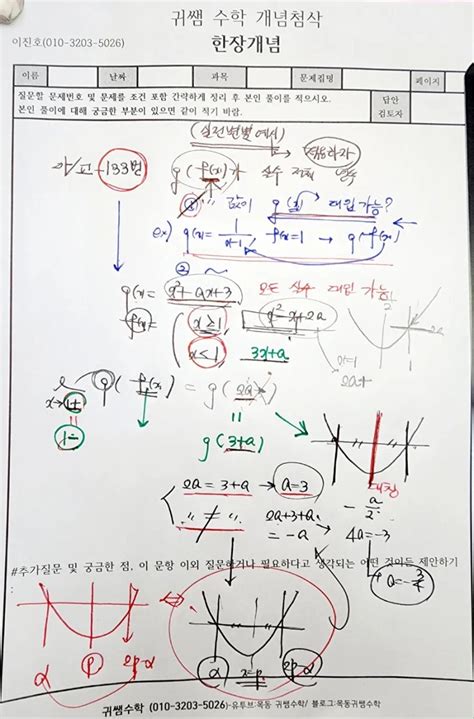 귀쌤 수학 개념첨삭
이진호(010-3203-5026)
한장개념
이름 날짜 과목 문제집명 페이지
질문할 문제번호 및 문제를 조건 포함 간략하게 정리 후 본인 풀이를 적으시오.
본인 풀이에 대해 궁금한 부분이 있으면 같이 적기 바람.
답안
검토자
(실전변별 예시)
→ 적용하자
133번
g(f(x))가 실수 전체 연속
① 값이 g(x) 대입 가능?
ex) g(x)= 1/(x-1) f(x)=1 → g(f(x))
②
g(x)= x²+ax+3 모든 실수 대입 가능
f(x)= x≥1, x²+x+2a
x<1, 3x+a
x=1
2a+
2a
g(f(x)) = g(2a+)
x→1+
=
1-
=
g(3+a)
대칭
2a=3+a → a=3
" ≠ "
2a+3+a
=-a
-a/2
4a=-3
a=-3/4
#추가질문 및 궁금한 점, 이 문항 이외 질문하거나 필요하다고 생각되는 어떤 것이든 제안하기
:
α p 2p-α
⇔
α x=p 2p-α
귀쌤수학 (010-3203-5026)-유투브:목동 귀쌤수학/ 블로그:목동귀쌤수학